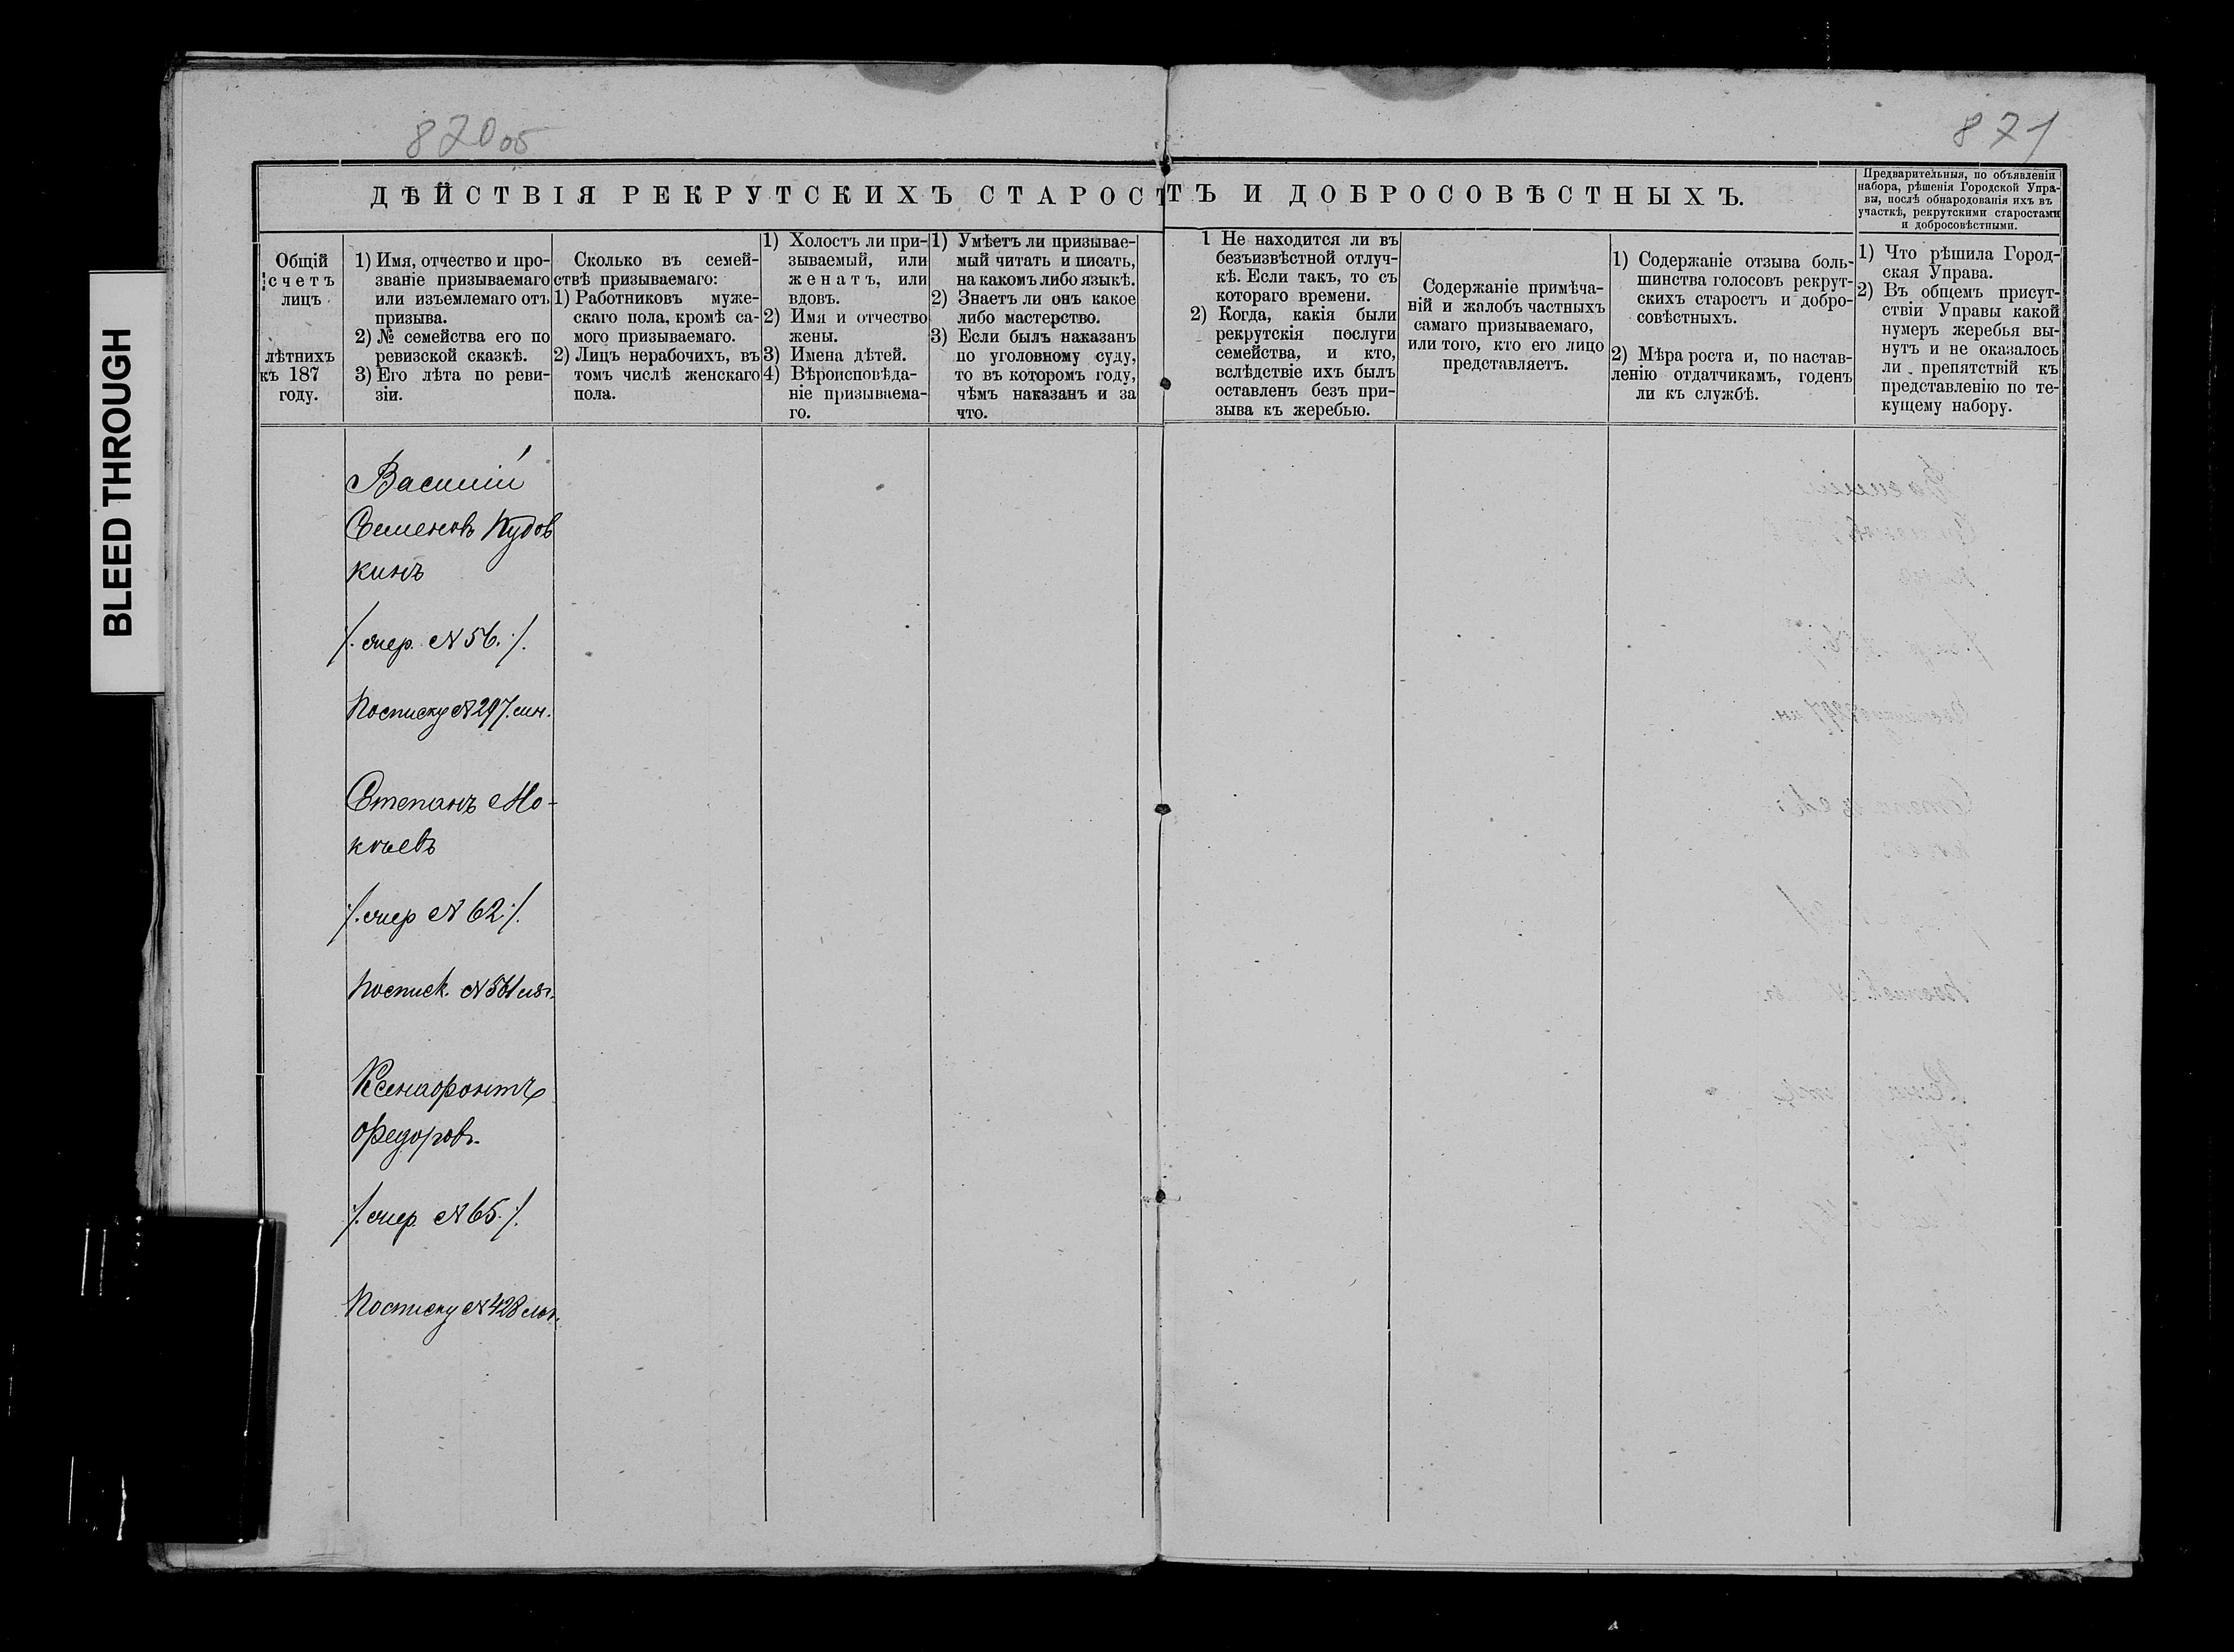 BLEED THROUGH
820 об
871
ДѢЙСТВІЯ РЕКРУТСКИХЪ СТАРОСТЪ И ДОБРОСОВѢСТНЫХЪ.
Предварительныя, по объявленіи
набора, рѣшенія Городской Упра-
вы, послѣ обнародованія ихъ въ
участкѣ, рекрутскими старостами
и добросовѣстными.
Общій
счетъ
лицъ
лѣтнихъ
къ 187
году.
1) Имя, отчество и про-
званіе призываемаго
или изъемлемаго отъ
призыва.
2) № семейства его по
ревизской сказкѣ.
3) Его лѣта по реви-
зіи.
Сколько въ семей-
ствѣ призываемаго:
1) Работниковъ муже-
скаго пола, кромѣ са-
мого призываемаго.
2) Лицъ нерабочихъ, въ
томъ числѣ женскаго
пола.
1) Холостъ ли при-
зываемый, или
женатъ, или
вдовъ.
2) Имя и отчество
жены.
3) Имена дѣтей.
4) Вѣроисповѣда-
ніе призываема-
го.
1) Умѣетъ ли призывае-
мый читать и писать,
на какомъ либо языкѣ.
2) Знаетъ ли онъ какое
либо мастерство.
3) Если былъ наказанъ
по уголовному суду,
то въ которомъ году,
чѣмъ наказанъ и за
что.
1 Не находится ли въ
безъизвѣстной отлуч-
кѣ. Если такъ, то съ
котораго времени.
2) Когда, какія были
рекрутскія послуги
семейства, и кто,
вслѣдствіе ихъ былъ
оставленъ безъ при-
зыва къ жеребью.
Содержаніе примѣча-
ній и жалобъ частныхъ
самаго призываемаго,
или того, кто его лицо
представляетъ.
1) Содержаніе отзыва боль-
шинства голосовъ рекрут-
скихъ старостъ и добро-
совѣстныхъ.
2) Мѣра роста и, по настав-
ленію отдатчикамъ, годенъ
ли къ службѣ.
1) Что рѣшила Город-
ская Управа.
2) Въ общемъ присут-
ствіи Управы какой
нумеръ жеребья вы-
нутъ и не оказалось
ли препятствій къ
представленію по те-
кущему набору.
Василій
Семеновъ Кудов
кинъ
/. очер. № 56. /.
По списку № 297.
Степанъ Мо-
кѣевъ
/. очер № 62 /.
По списк. № 561
Ксенофонтъ
Федоровъ
/. очер. № 65. /.
По списку № 428